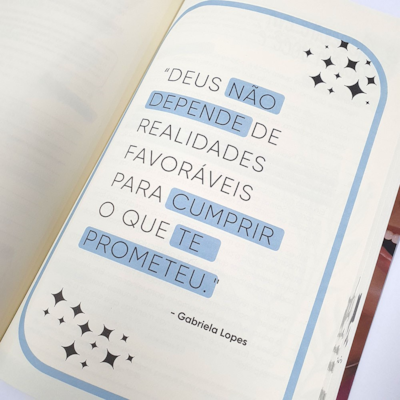 "DEUS NÃO
DEPENDE DE
REALIDADES
FAVORÁVEIS
PARA CUMPRIR
O QUE TE
PROMETEU."
– Gabriela Lopes